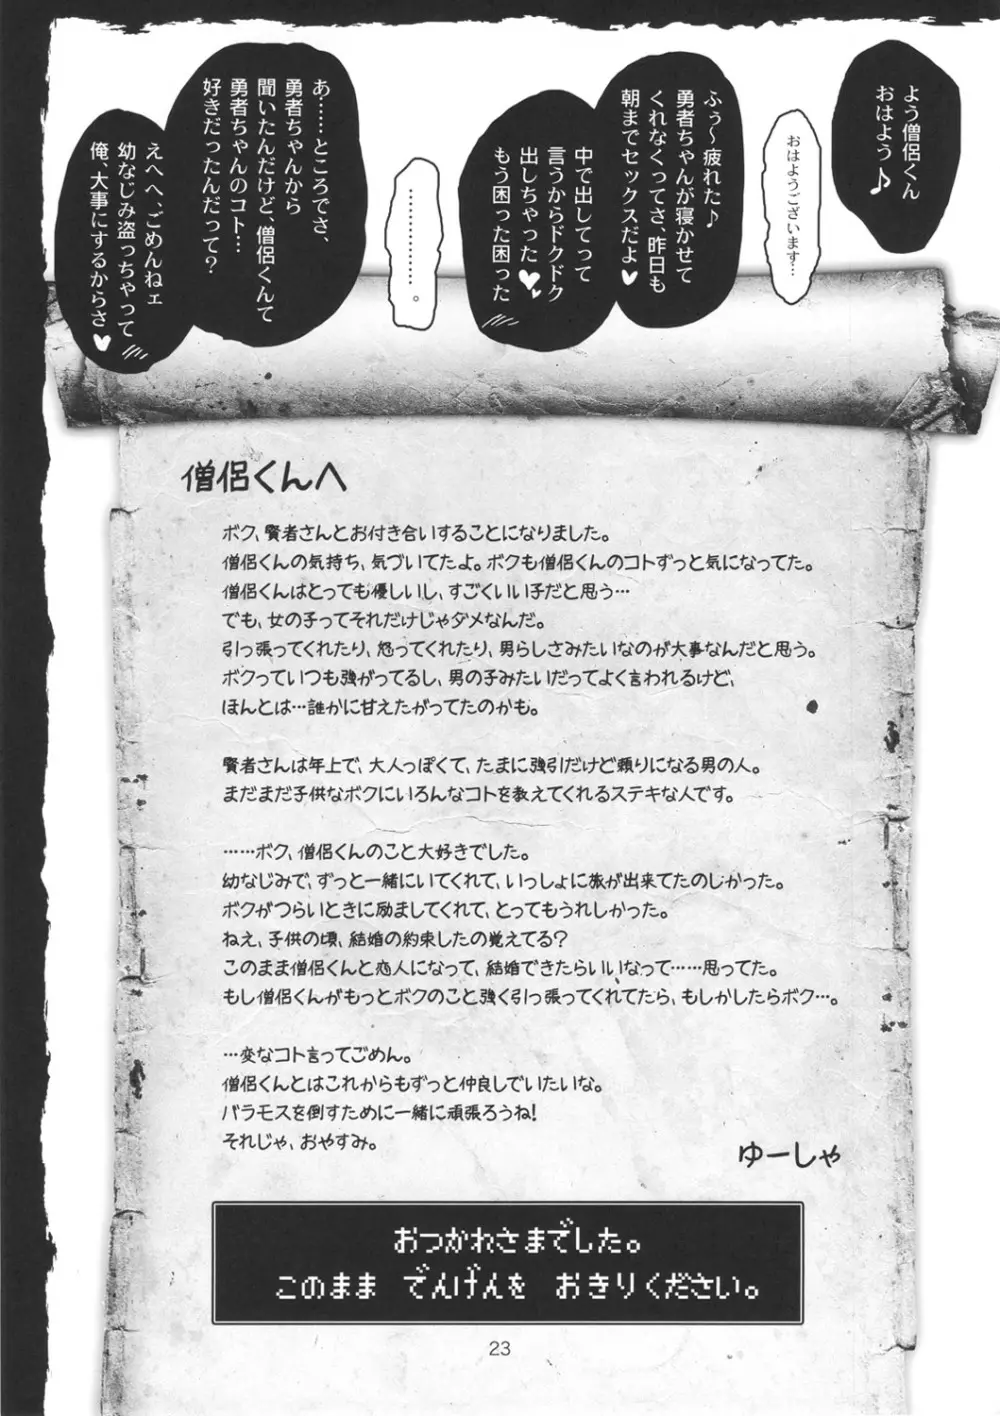 よう僧侶くん
おはよう♪
おはようございます…
ふぅ～疲れた♪
勇者ちゃんが寝かせて
くれなくってさ、昨日も
朝までセックスだよ♥
中で出してって
言うからドクドク
出しちゃった♥
もう困った困った
…………。
あ……ところでさ、
勇者ちゃんから
聞いたんだけど、僧侶くんて
勇者ちゃんのコト…
好きだったんだって？
えへへ、ごめんねェ
幼なじみ盗っちゃって
俺、大事にするからさ♥
僧侶くんへ
ボク、賢者さんとお付き合いすることになりました。
僧侶くんの気持ち、気づいてたよ。ボクも僧侶くんのコトずっと気になってた。
僧侶くんはとっても優しいし、すごくいい子だと思う…
でも、女の子ってそれだけじゃダメなんだ。
引っ張ってくれたり、怒ってくれたり、男らしさみたいなのが大事なんだと思う。
ボクっていつも強がってるし、男の子みたいだってよく言われるけど、
ほんとは…誰かに甘えたがってたのかも。
賢者さんは年上で、大人っぽくて、たまに強引だけど頼りになる男の人。
まだまだ子供なボクにいろんなコトを教えてくれるステキな人です。
……ボク、僧侶くんのこと大好きでした。
幼なじみで、ずっと一緒にいてくれて、いっしょに旅が出来てたのしかった。
ボクがつらいときに励ましてくれて、とってもうれしかった。
ねえ、子供の頃、結婚の約束したの覚えてる？
このまま僧侶くんと恋人になって、結婚できたらいいなって……思ってた。
もし僧侶くんがもっとボクのこと強く引っ張ってくれてたら、もしかしたらボク…。
…変なコト言ってごめん。
僧侶くんとはこれからもずっと仲良しでいたいな。
バラモスを倒すために一緒に頑張ろうね！
それじゃ、おやすみ。
ゆーしゃ
おつかれさまでした。
このまま でんげんを おきりください。
23